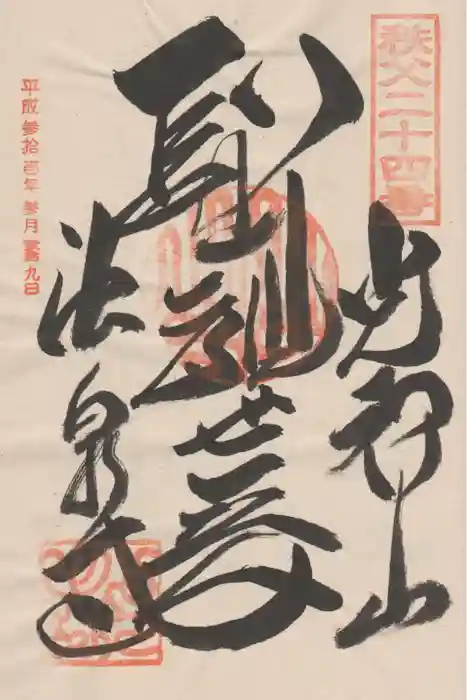 秩父二十四番
光智山
聖観世音
法泉寺
平成参拾壱年 参月 弐拾九日